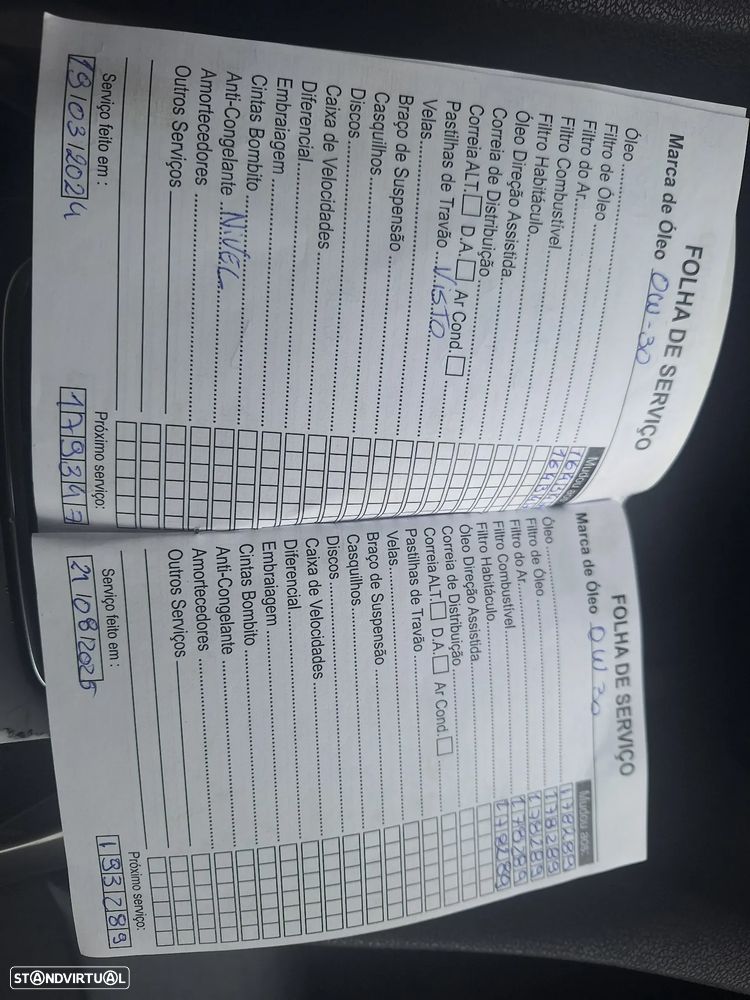 FOLHA DE SERVIÇO
Marca de Óleo 0W-30
Mudou aos:
Óleo
Filtro de Óleo
Filtro do Ar
Filtro Combustível
Filtro Habitáculo
Óleo Direção Assistida
Correia de Distribuição
Correia ALT. D.A. Ar Cond.
Pastilhas de Travão VISTO
Velas
Braço de Suspensão
Casquilhos
Discos
Caixa de Velocidades
Diferencial
Embraiagem
Cintas Bombito
Anti-Congelante NIVEL
Amortecedores
Outros Serviços
Serviço feito em :
19/03/2024
Próximo serviço:
179347
FOLHA DE SERVIÇO
Marca de Óleo 0W30
Mudou aos:
Óleo 178289
Filtro de Óleo 178289
Filtro do Ar 178289
Filtro Combustível 178289
Filtro Habitáculo 178289
Óleo Direção Assistida
Correia de Distribuição
Correia ALT. D.A. Ar Cond.
Pastilhas de Travão
Velas
Braço de Suspensão
Casquilhos
Discos
Caixa de Velocidades
Diferencial
Embraiagem
Cintas Bombito
Anti-Congelante
Amortecedores
Outros Serviços
Serviço feito em :
21/08/2025
Próximo serviço:
193289
STANDVIRTUAL